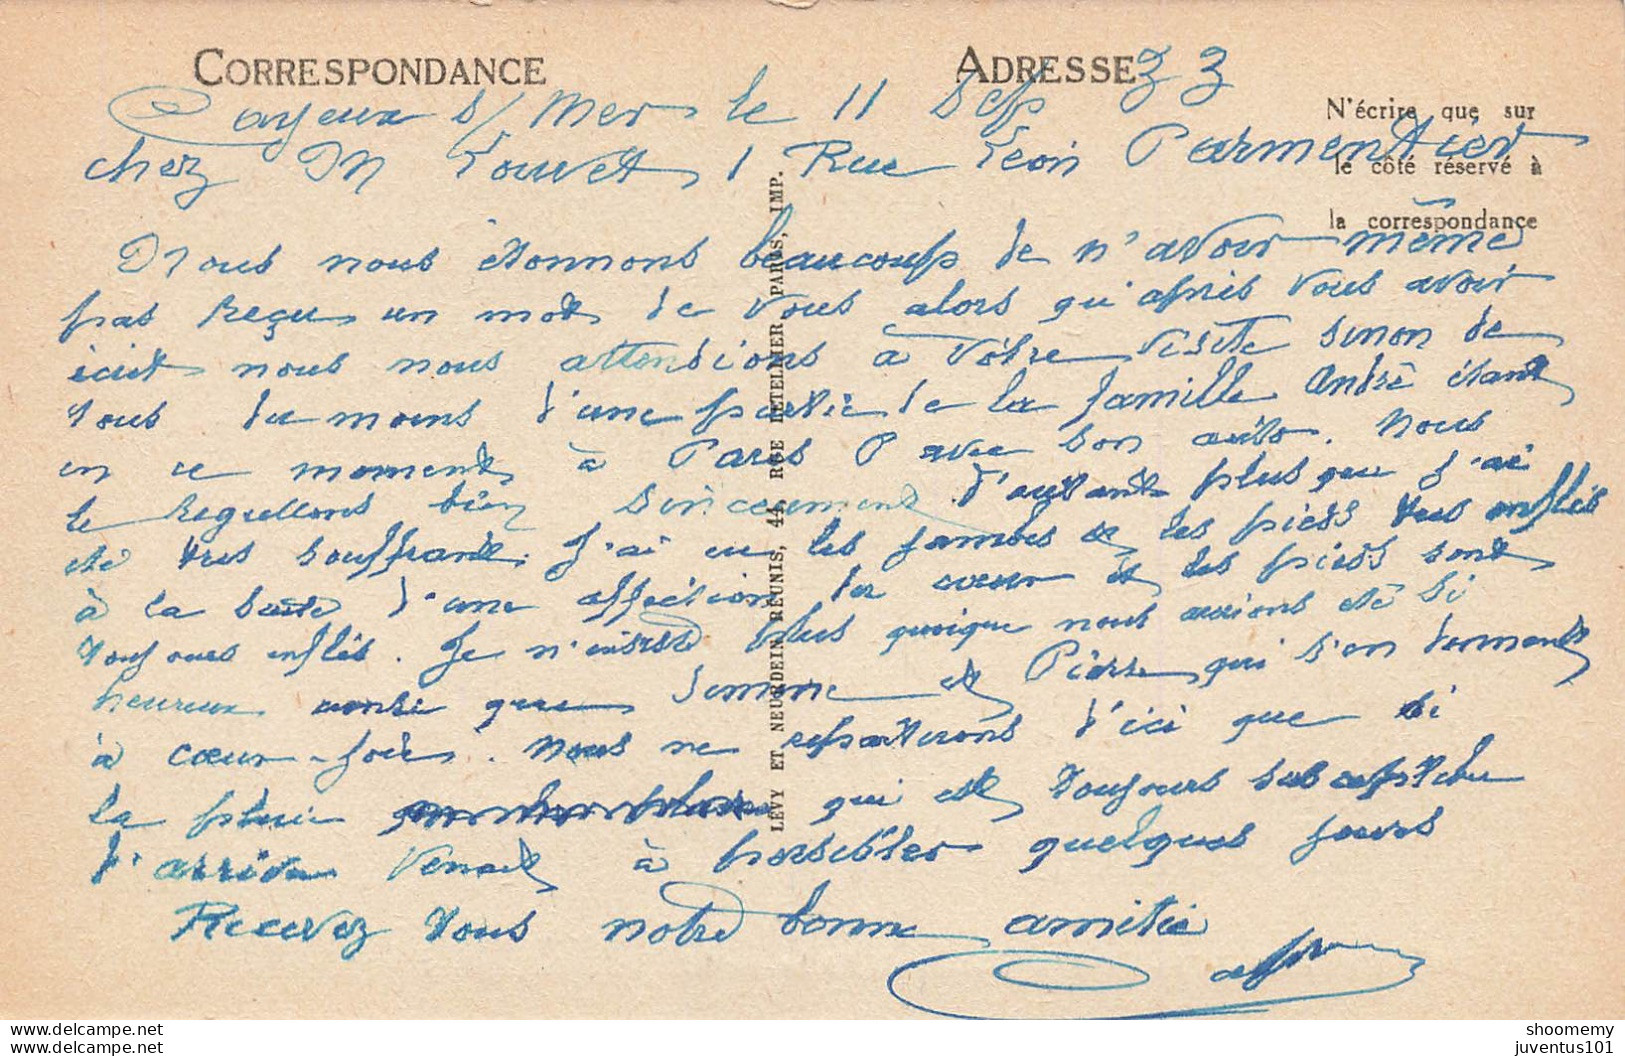 CORRESPONDANCE
ADRESSE
N'écrire que sur
le côté réservé à
la correspondance
Cayeux s/ Mer le 11 Sep 33
chez M Louvet 1 Rue Léon Parmentier
Nous nous étonnons beaucoup de n'avoir même
pas reçu un mot de vous alors qu'après vous avoir
écrit nous nous attendions à votre visite sinon de
tous du moins d'une partie de la famille André étant
en ce moment à Paris avec son auto. Nous
le regrettons bien sincèrement d'autant plus que j'ai
été très souffrante. J'ai eu les jambes et les pieds très enflés
à la suite d'une affection du cœur et les pieds sont
toujours enflés. Je n'insiste plus quoique nous aurions été si
heureux ainsi que Simone et Pierre qui s'en donnent
à cœur-joie. Nous ne repartirons d'ici que si
la pluie qui est toujours susceptible
d'arriver venait à persister quelques jours
Recevez tous notre bonne amitié
LÉVY ET NEURDEIN RÉUNIS, 44, RUE LETELLIER PARIS, IMP.
shoomemy
juventus101 et delcampe.net